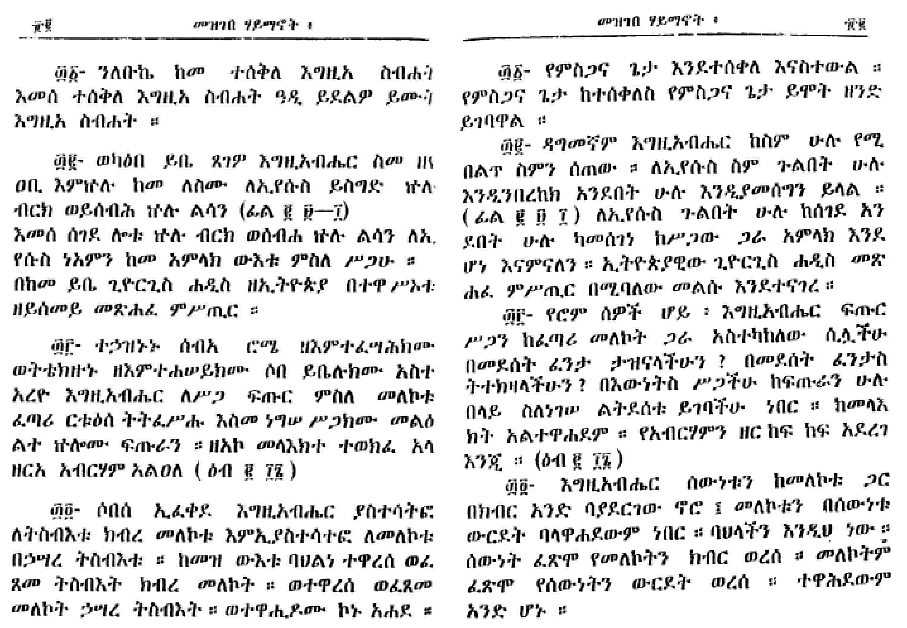 ፷፪ መዝገበ ሃይማኖት ፡
፴፩- ንለቡኬ ከመ ተሰቅለ እግዚአ ስብሐት
እመሰ ተሰቅለ እግዚአ ስብሐት ዓዲ ይደልዎ ይሙት
እግዚአ ስብሐት ።
፴፪- ወካዕበ ይቤ ጸገዎ እግዚአብሔር ስመ ዘ
ዐቢ እምኵሉ ከመ ለስሙ ለኢየሱስ ይስግድ ኵሉ
ብርክ ወይሰብሕ ኵሉ ልሳን (ፊል ፪ ፱—፲)
እመሰ ሰገደ ሎቱ ኵሉ ብርክ ወሰብሐ ኵሉ ልሳን ለኢ
የሱስ ነአምን ከመ አምላክ ውእቱ ምስለ ሥጋሁ ።
በከመ ይቤ ጊዮርጊስ ሐዲስ ዘኢትዮጵያ በተዋሥኦቱ
ዘይሰመይ መጽሐፈ ምሥጢር ።
፴፫- ተኃዝኑኑ ሰብአ ሮሜ ዘእምተፈሣሕክሙ
ወትቴክዙኑ ዘእምተሐሠይክሙ ሶበ ይቤሉክሙ አስተ
አረዮ እግዚአብሔር ለሥጋ ፍጡር ምስለ መለኮቱ
ፈጣሪ ርቱዕሰ ትትፈሥሑ እስመ ነግሠ ሥጋክሙ መልዕ
ልተ ኵሎሙ ፍጡራን ። ዘአኮ መላእክተ ተወክፈ አላ
ዘርአ አብርሃም አልዐለ ( ዕብ ፪ ፲፮ )
፴፬- ሶበሰ ኢፈቀደ እግዚአብሔር ያስተሳትፎ
ለትስብእቱ ክብረ መለኮቱ እምኢያስተሳተፎ ለመለኮቱ
በኃሣረ ትስብእቱ ። ከመዝ ውእቱ ባህልነ ተዋረሰ ወፈ
ጸመ ትስብእት ክብረ መለኮት ። ወተዋረሰ ወፈጸመ
መለኮት ኃሣረ ትስብእት ። ወተዋሒዶሙ ኮኑ አሐደ ።
መዝገበ ሃይማኖት ፡ ፷፪
፴፩- የምስጋና ጌታ እንደተሰቀለ እናስተውል ።
የምስጋና ጌታ ከተሰቀለስ የምስጋና ጌታ ይሞት ዘንድ
ይገባዋል ።
፴፪- ዳግመኛም እግዚአብሔር ከስም ሁሉ የሚ
በልጥ ስምን ሰጠው ። ለኢየሱስ ስም ጉልበት ሁሉ
እንዲንበረከክ አንደበት ሁሉ እንዲያመሰግን ይላል ።
( ፊል ፪ ፱ ፲ ) ለኢየሱስ ጉልበት ሁሉ ከሰገደ አን
ደበት ሁሉ ካመሰገነ ከሥጋው ጋራ አምላክ እንደ
ሆነ እናምናለን ። ኢትዮጵያዊው ጊዮርጊስ ሐዲስ መጽ
ሐፈ ምሥጢር በሚባለው መልሱ እንደተናገረ ።
፴፫- የሮም ሰዎች ሆይ ፡ እግዚአብሔር ፍጡር
ሥጋን ከፈጣሪ መለኮት ጋራ አስተካከለው ሲሏችሁ
በመደሰት ፈንታ ታዝናላችሁን ? በመደሰት ፈንታስ
ትተክዛላችሁን ? በእውነትስ ሥጋችሁ ከፍጡራን ሁሉ
በላይ ስለነገሠ ልትደሰቱ ይገባችሁ ነበር ። ከመላእ
ክት አልተዋሐደም ። የአብርሃምን ዘር ከፍ ከፍ አደረገ
እንጂ ። (ዕብ ፪ ፲፮ )
፴፬- እግዚአብሔር ሰውነቱን ከመለኮቱ ጋር
በክብር አንድ ባያደርገው ኖሮ ፤ መለኮቱን በሰውነቱ
ውርደት ባላዋሐደውም ነበር ። ባህላችን እንዲህ ነው ።
ሰውነት ፈጽሞ የመለኮትን ክብር ወረሰ ። መለኮትም
ፈጽሞ የሰውነትን ውርደት ወረሰ ። ተዋሕደውም
አንድ ሆኑ ።